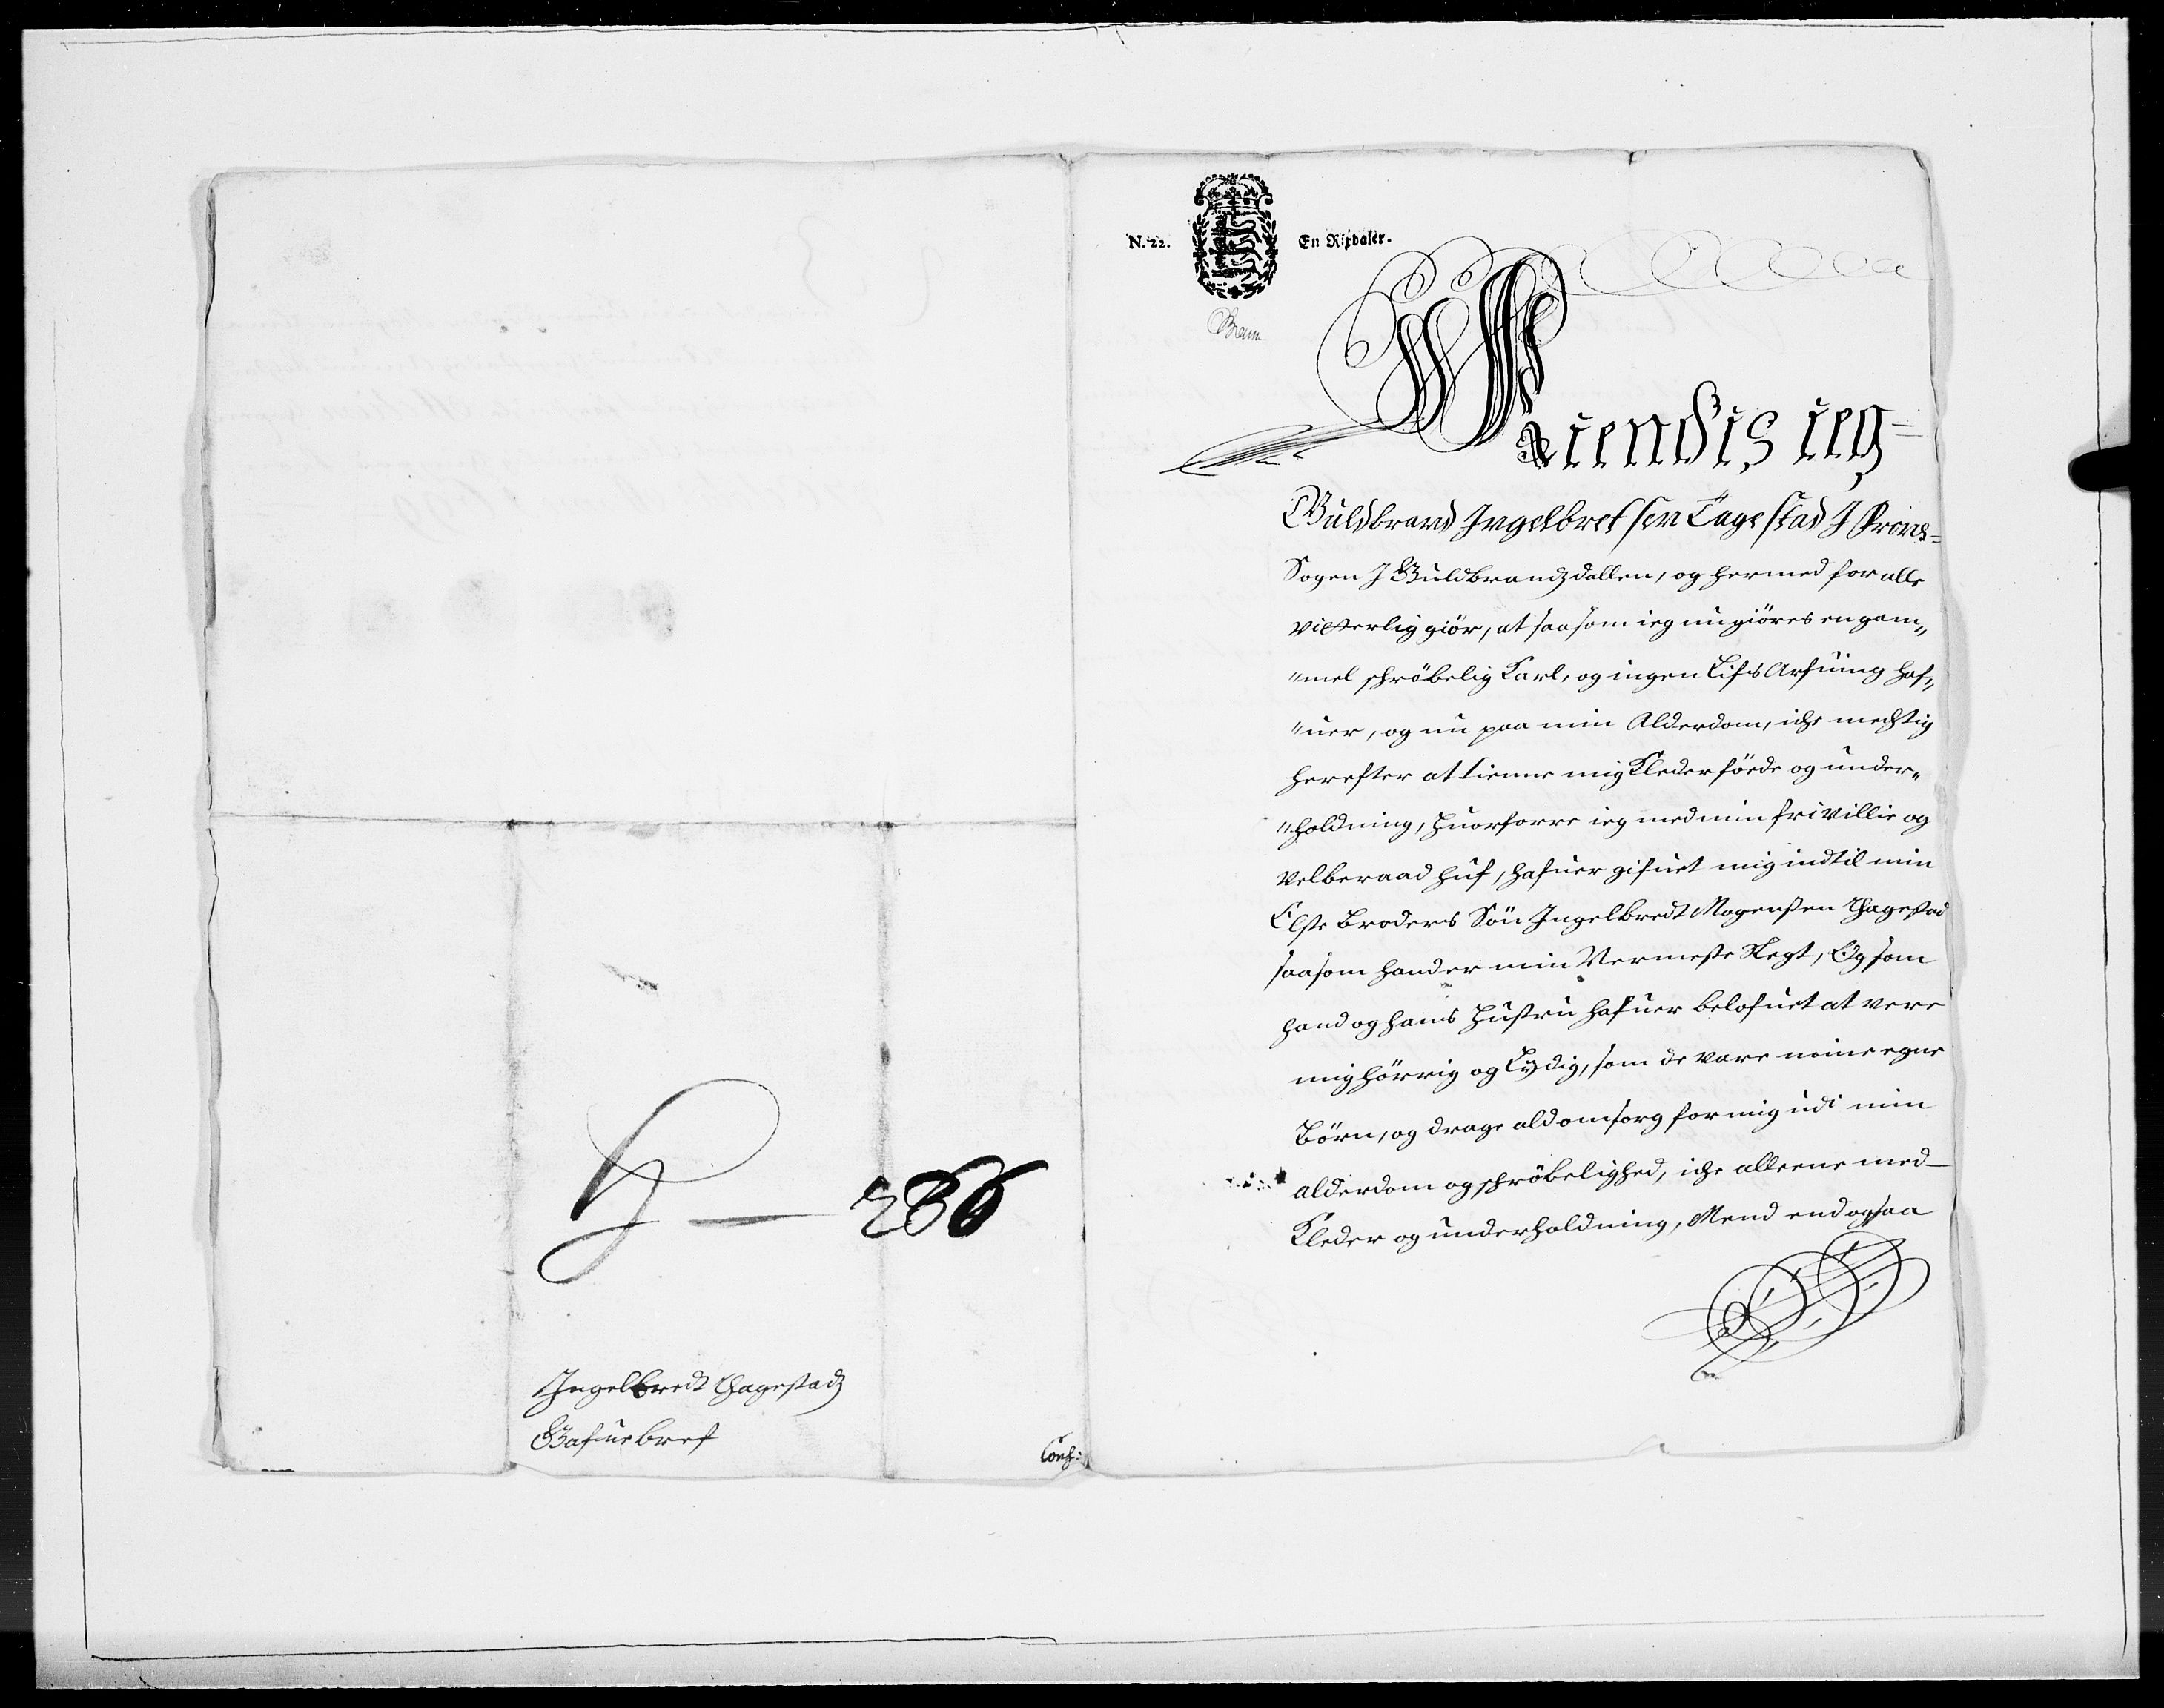 N. 22. En Rixdaler.
Kiendis ieg=
Guldbrand Ingelbretsen Tagestad J Frons=
Sogen J Guldbrandzdallen, og hermed for alle
vitterlig giör, at saasom ieg nu giöres en gam„
„mel schröbelig Karl, og ingen Lifs Arfuing haf„
„uer, og nu paa min Alderdom, iche mechtig
herefter at tienne mig Kleder föede og under„
„holdning, Huorforre ieg med min fri Villie og
velberaad huf, hafuer gifuet mig indtil min
Elste Broders Sön Ingelbredt Mogensen Hagestad
saasom hand er min Nermeste Slegt, Og som
hand og hans Hustru hafuer belofuet at vere
mig hörrig og Lydig, som de vare mine egne
Börn, og drage ald omsorg for mig udi min
alderdom og schröbelighed, iche alleene med
Kleder og underholdning, Mend end ogsaa
286
Ingelbredt Hagestadz
Gafuebref
Conf: